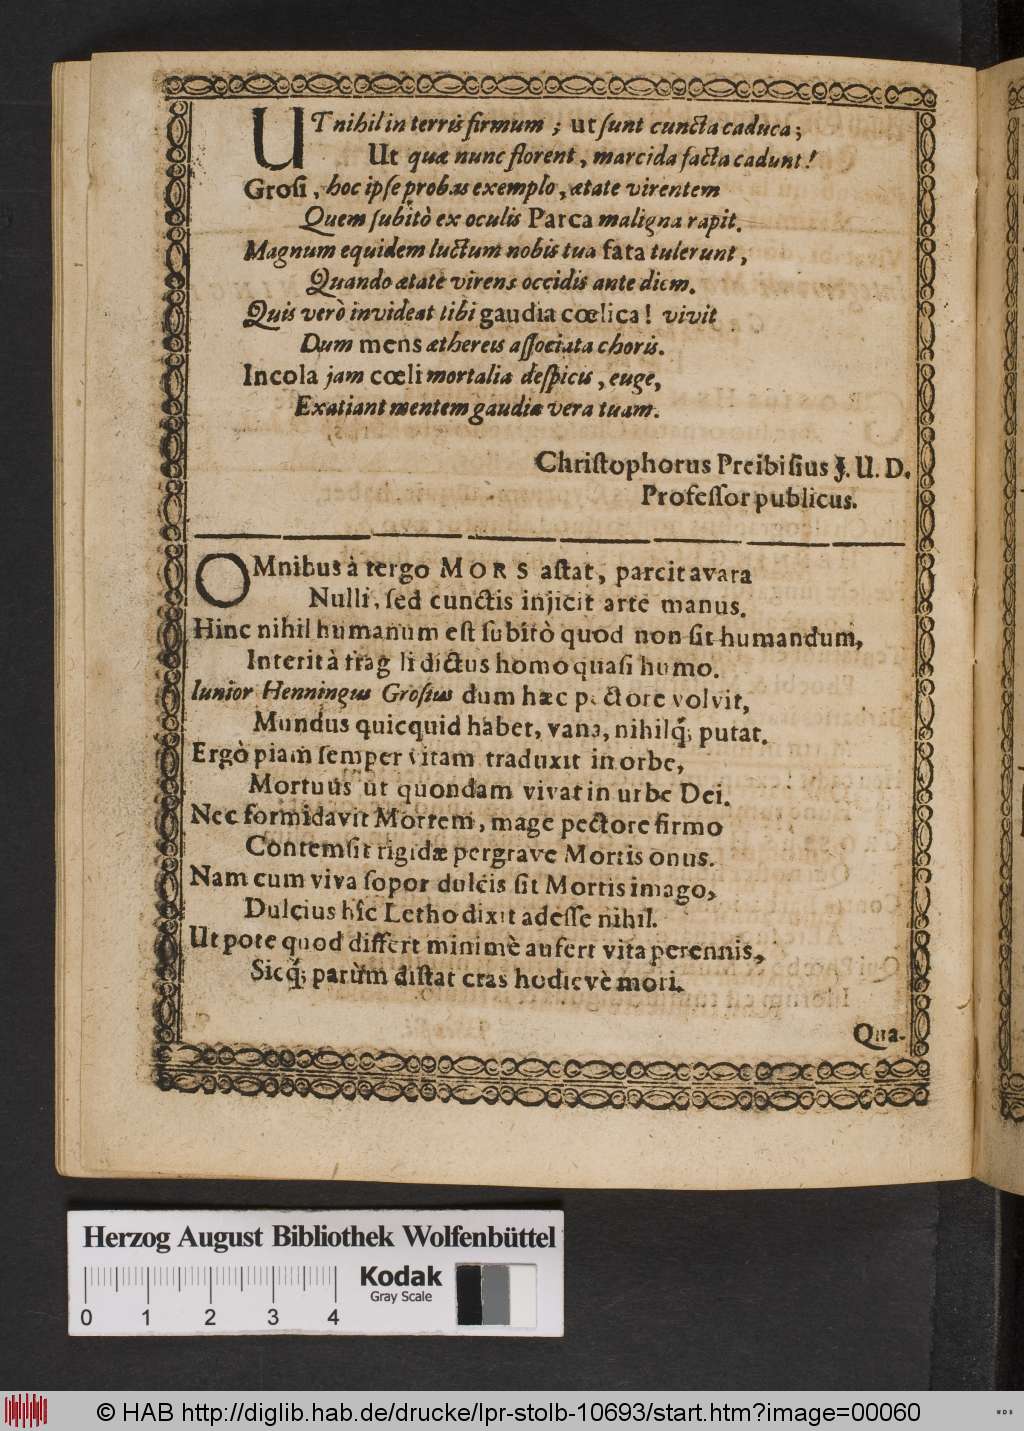 UT nihil in terris firmum ; ut ſunt cuncta caduca ;
Ut quæ nunc florent , marcida facta cadunt !
Groſi , hoc ipſe probas exemplo , ætate virentem
Quem ſubitò ex oculis Parca maligna rapit.
Magnum equidem luctum nobis tua fata tulerunt ,
Quando ætate virens occidis ante diem.
Quis verò invideat tibi gaudia cœlica ! vivit
Dum mens æthereis aſſociata choris.
Incola jam cœli mortalia deſpicis , euge,
Exatiant mentem gaudia vera tuam.
Chriſtophorus Preibiſius J. U. D.
Profeſſor publicus.
OMnibus à tergo MORS aſtat, parcit avara
Nulli, ſed cunctis injicit arte manus.
Hinc nihil humanum eſt ſubitò quod non ſit humandum,
Interit à fragili dictus homo quaſi humo.
Iunior Henningus Groſius dum hæc pectore volvit,
Mundus quicquid habet, vana, nihilq́; putat.
Ergò piam ſemper vitam traduxit in orbe,
Mortuus ut quondam vivat in urbe Dei.
Nec formidavit Mortem, mage pectore firmo
Contemſit rigidæ pergrave Mortis onus.
Nam cum viva ſopor dulcis ſit Mortis imago,
Dulcius hîc Letho dixit adeſſe nihil.
Ut pote quod differt minimè aufert vita perennis,
Sicq́; parùm diſtat cras hodievè mori.
Qua-
Herzog August Bibliothek Wolfenbüttel
Kodak
Gray Scale
0 1 2 3 4
© HAB http://diglib.hab.de/drucke/lpr-stolb-10693/start.htm?image=00060